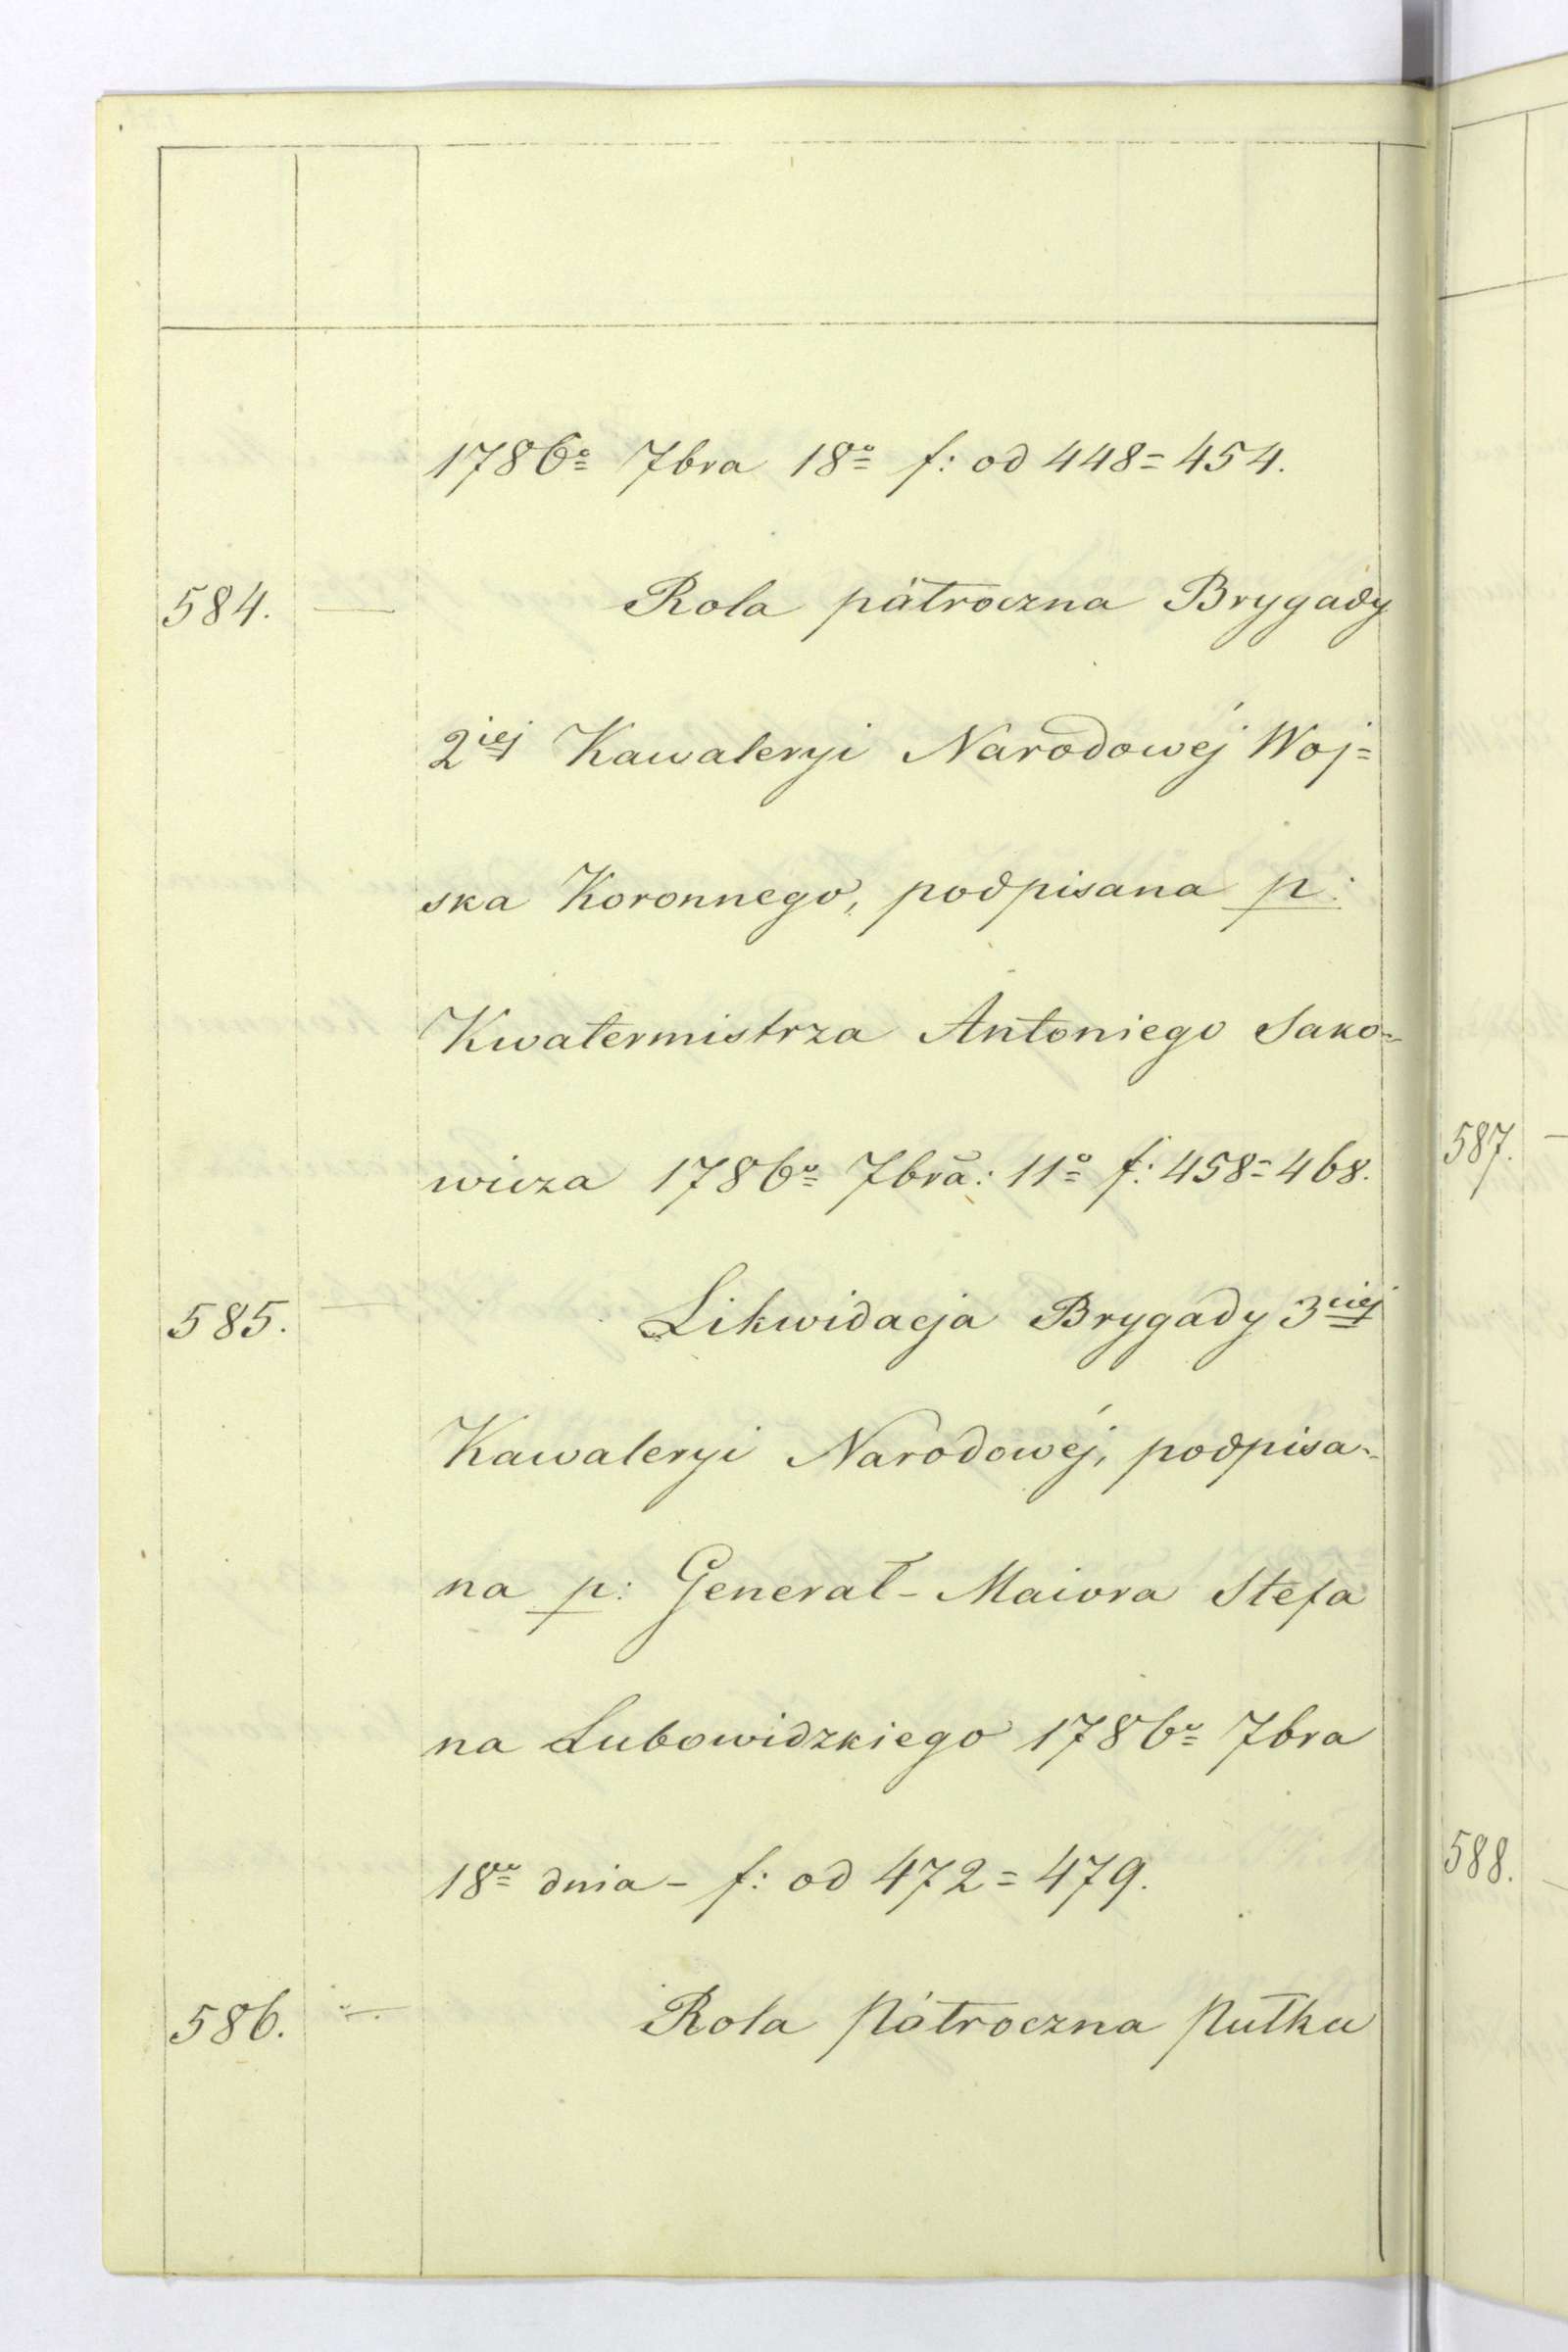 1786º 7bra 18º f: od 448=454.
584. — Rola pátroczna Brygady
2iej Kawaleryi Narodowéj Woj=
ska Koronnego, podpisana p:
Kwatermistrza Antoniego Sako-
wicza 1786º 7bra: 11º f: 458=468.
585. — Likwidacja Brygady 3ciej
Kawaleryi Narodowéj, podpisa-
na p: Generał-Maiora Stefa
na Lubowidzkiego 1786º 7bra
18º dnia - f: od 472=479.
586. — Rola Pótroczna Pułku
587. —
588. —